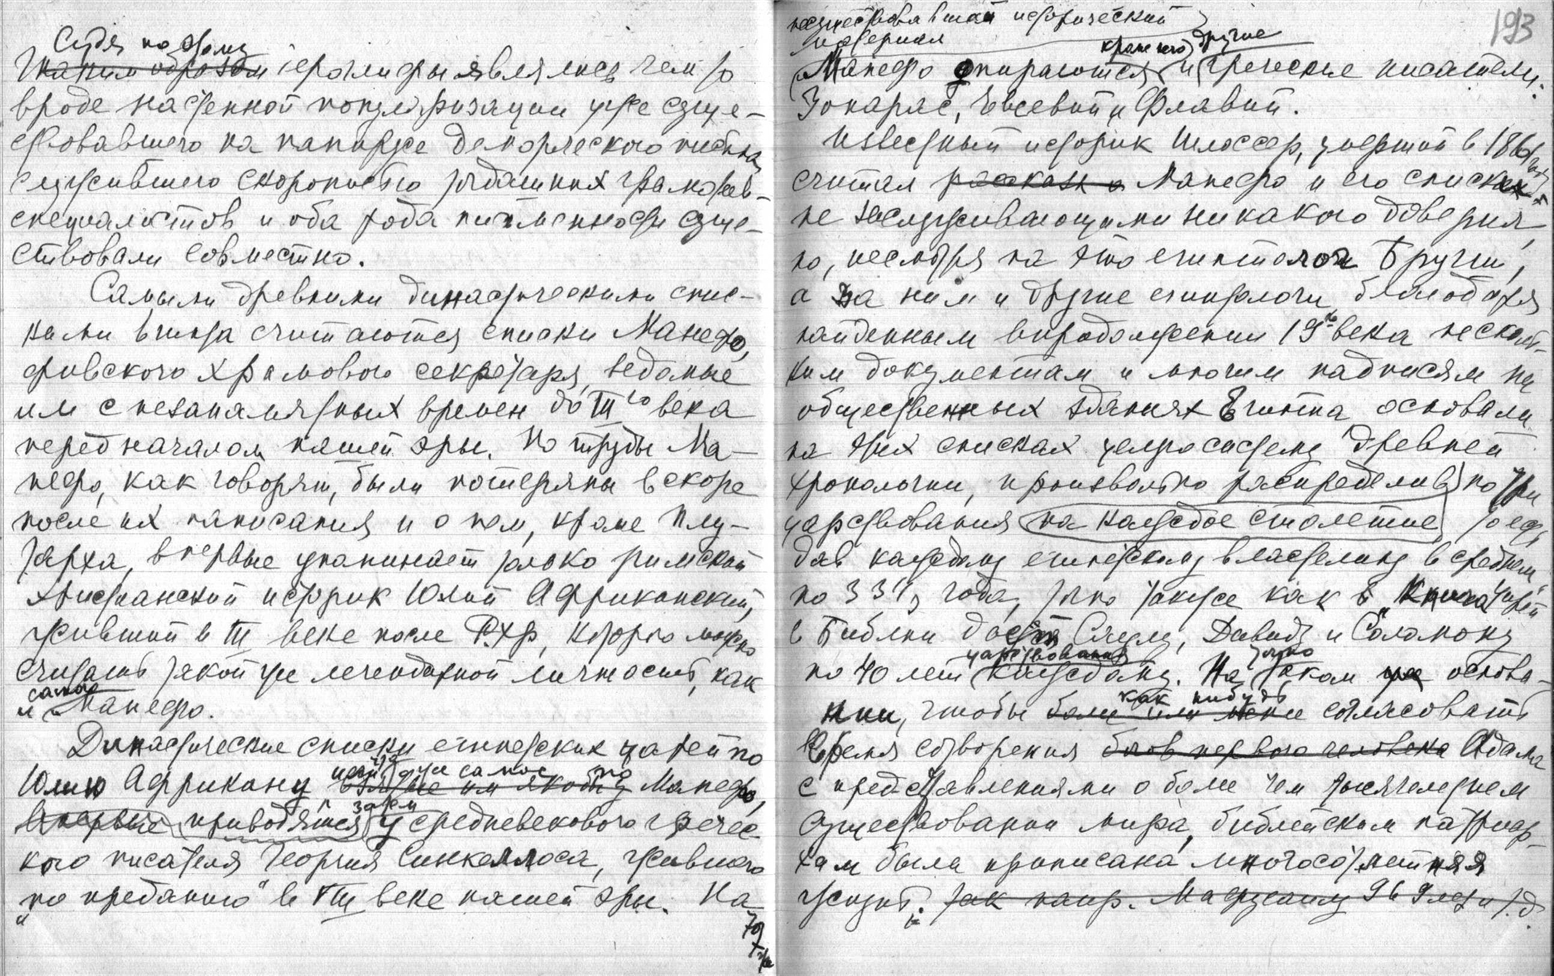 Судя по этому
Таким образом іероглифы являлись чем то
вроде настенной популяризации уже суще-
ствовавшего на папирусе демотического письма
служившего скорописью тогдашних грамотеев-
специалистов и оба рода письменности суще-
ствовали совместно.
Самыми древними династическими спис-
ками Египта считаются списки Манефо,
фивского храмового секретаря, ведомые
им с незапамятных времен до III го века
перед началом нашей эры. Но труды Ма-
нефо, как говорят, были потеряны вскоре
после их написания и о нем, кроме Плу-
тарха, впервые упоминает только римский
христианский историк Юлий Африканский,
живший в III веке после Р.Хр, которого можно
считать такой же легендарной личностью, как
и самого Манефо.
Династические списки египетских царей по
Юлию Африкану взятые им якобы у Манефо,
впервые приводятся затем у средневекового гречес-
кого писателя Георгия Синкеллоса, жившего
"по преданию" в VIII веке нашей эры. На
193
несуществовавший исторический
материал
Манефо опираются кроме того и другие греческие писатели:
Зонарас, Евсевий и Флавий.
Известный историк Шлоссер, умерший в 1861 году
считал рассказы о Манефо и его списках
не заслуживающими никакого доверия,
но, несмотря на это египтолог Бругш,
а за ним и другие египтологи благодаря
найденным в продолжении 19го века несколь-
ким документам и многим надписям на
общественных зданиях Египта основали
на этих списках целую систему древней
хронологии, произвольно распределив по три
царствования на каждое столетие, то есть
дав каждому египетскому властелину в среднем
по 33 1/3 года, точно также как в "Книге Царей"
в Библии дается Саулу, Давиду и Соломону
по 40 лет царствования каждому. На точно таком же основа-
нии, чтобы более или менее как нибудь согласовать
время сотворения богов первого человека Адама
с представлениями о более чем тысячелетнем
существовании мира, библейским патриар-
хам была приписана многосотлетняя
жизнь. Так напр. Мафусаилу 969 лет и т.д.